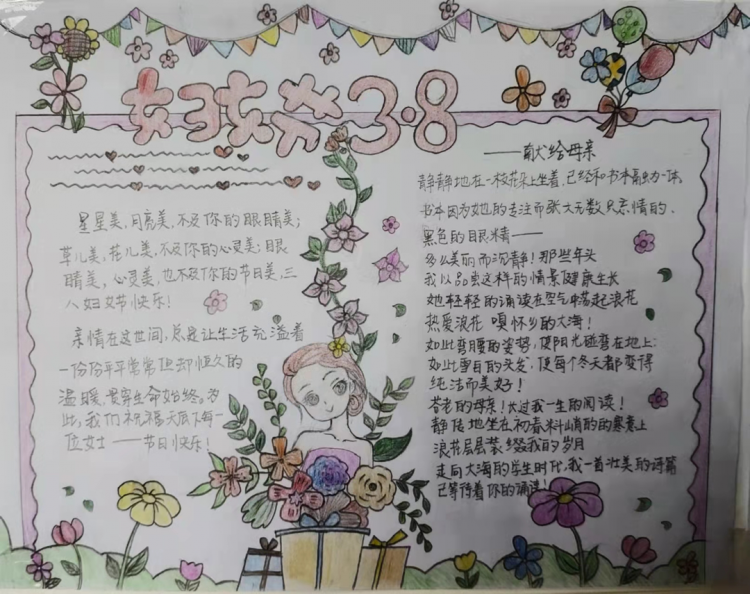 女孩节 3·8
星星美，月亮美，不及你的眼睛美；
草儿美，花儿美，不及你的心灵美；眼
睛美，心灵美，也不及你的节日美，三
八妇女节快乐！
亲情在这世间，总是让生活充溢着
一份份平平常常但却恒久的
温暖，贯穿生命始终。为
此，我们祝福天底下每一
位女士——节日快乐！
——献给母亲
静静地在一枝花朵上坐着，已经和书本融为一体。
书本因为她的专注而张大无数只亲情的、
黑色的眼睛——
多么美丽而沉静！那些年头
我以品尝这样的情景健康生长
她轻轻的诵读在空气中荡起浪花
热爱浪花 嗅怀乡的大海！
如此弯腰的姿势，使阳光碰弯在地上；
如此雪白的头发，使每个冬天都变得
纯洁而美好！
苍老的母亲！大过我一生的阅读！
静传地坐在初春料峭的的寒意上
浪花层层装 我的岁月
走向大海的学生时代，我一首壮美的诗篇
已等待着你的诵读！